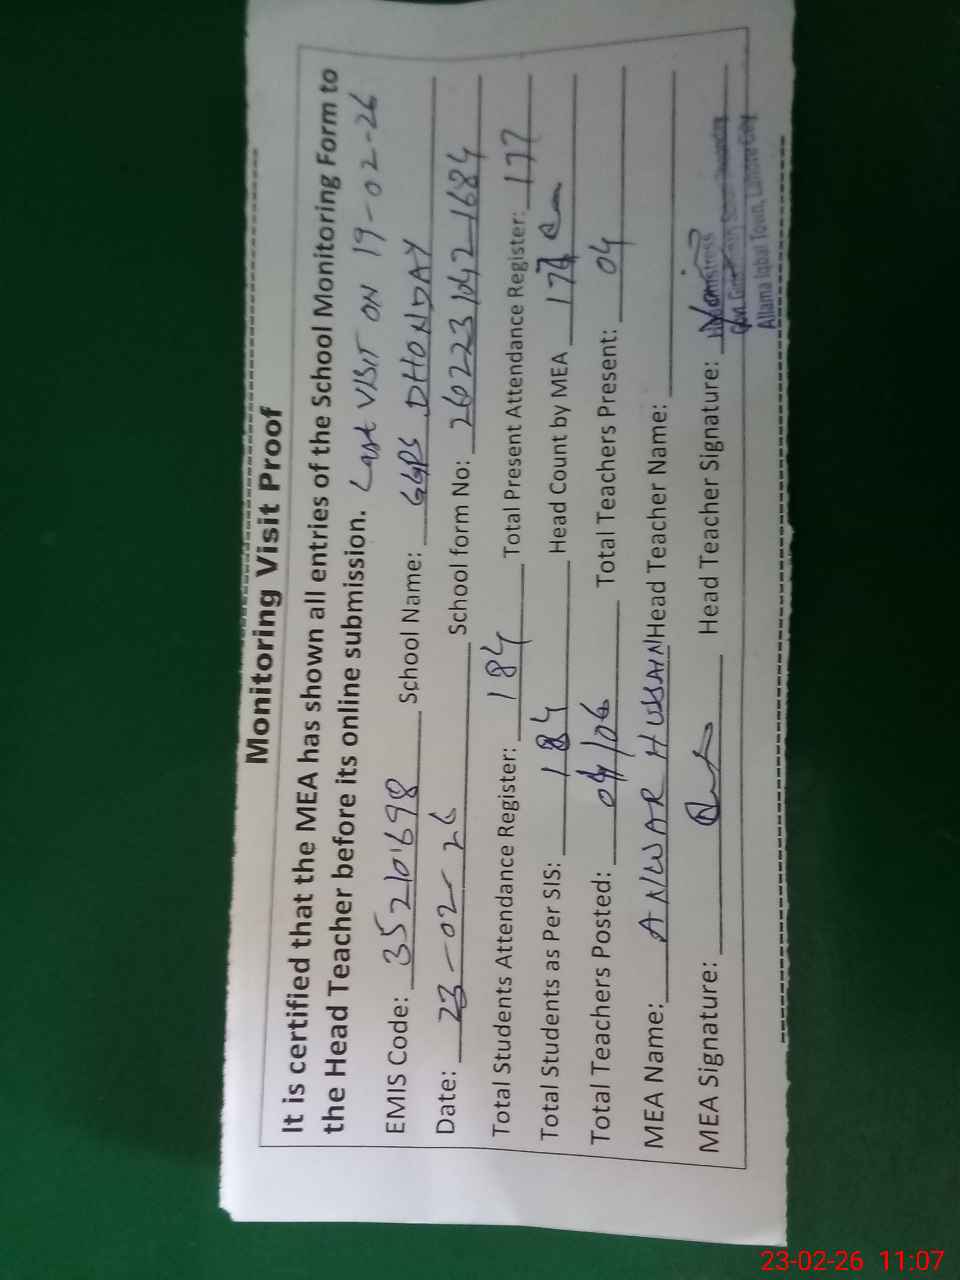 Monitoring Visit Proof
It is certified that the MEA has shown all entries of the School Monitoring Form to
the Head Teacher before its online submission. Last VISIT ON 19-02-26
EMIS Code: 35210698 School Name: GGPS DHONDAY
Date: 23-02-26 School form No: 26022310421684
Total Students Attendance Register: 184 Total Present Attendance Register: 177
Total Students as Per SIS: 184 Head Count by MEA
Total Teachers Posted: 04/04 Total Teachers Present: 04
MEA Name: ANWAR HUSSAIN Head Teacher Name:
MEA Signature: Head Teacher Signature:
Headmistress
Allama Iqbal Town, Lahore City
23-02-26 11:07